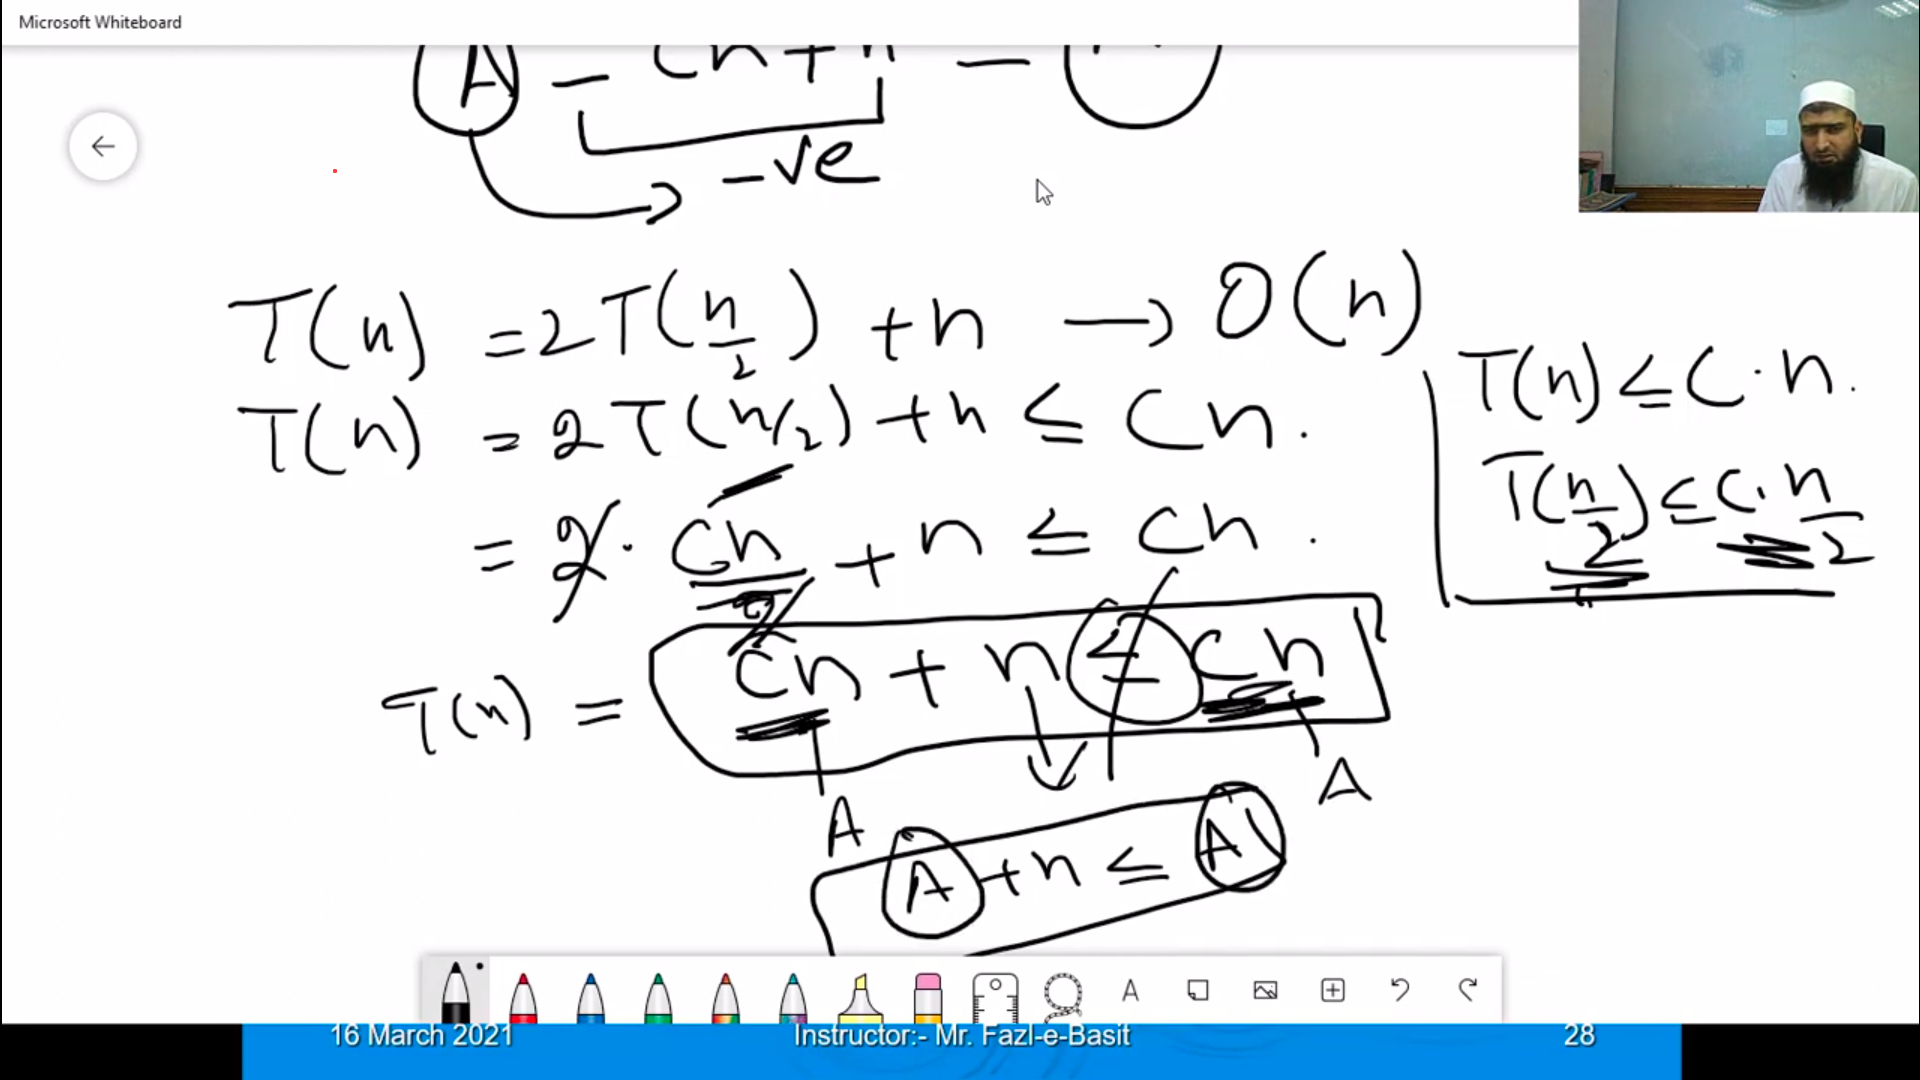 Microsoft Whiteboard
A - cn + n -
-ve
T(n) = 2T(n/2) + n → O(n)
T(n) = 2T(n/2) + n ≤ Cn.
= 2. Cn/2 + n ≤ Cn.
T(n) = Cn + n ≤ Cn
A A
A + n ≤ A
T(n) ≤ C.n.
T(n/2) ≤ C.n/2
A
16 March 2021
Instructor:- Mr. Fazl-e-Basit
28